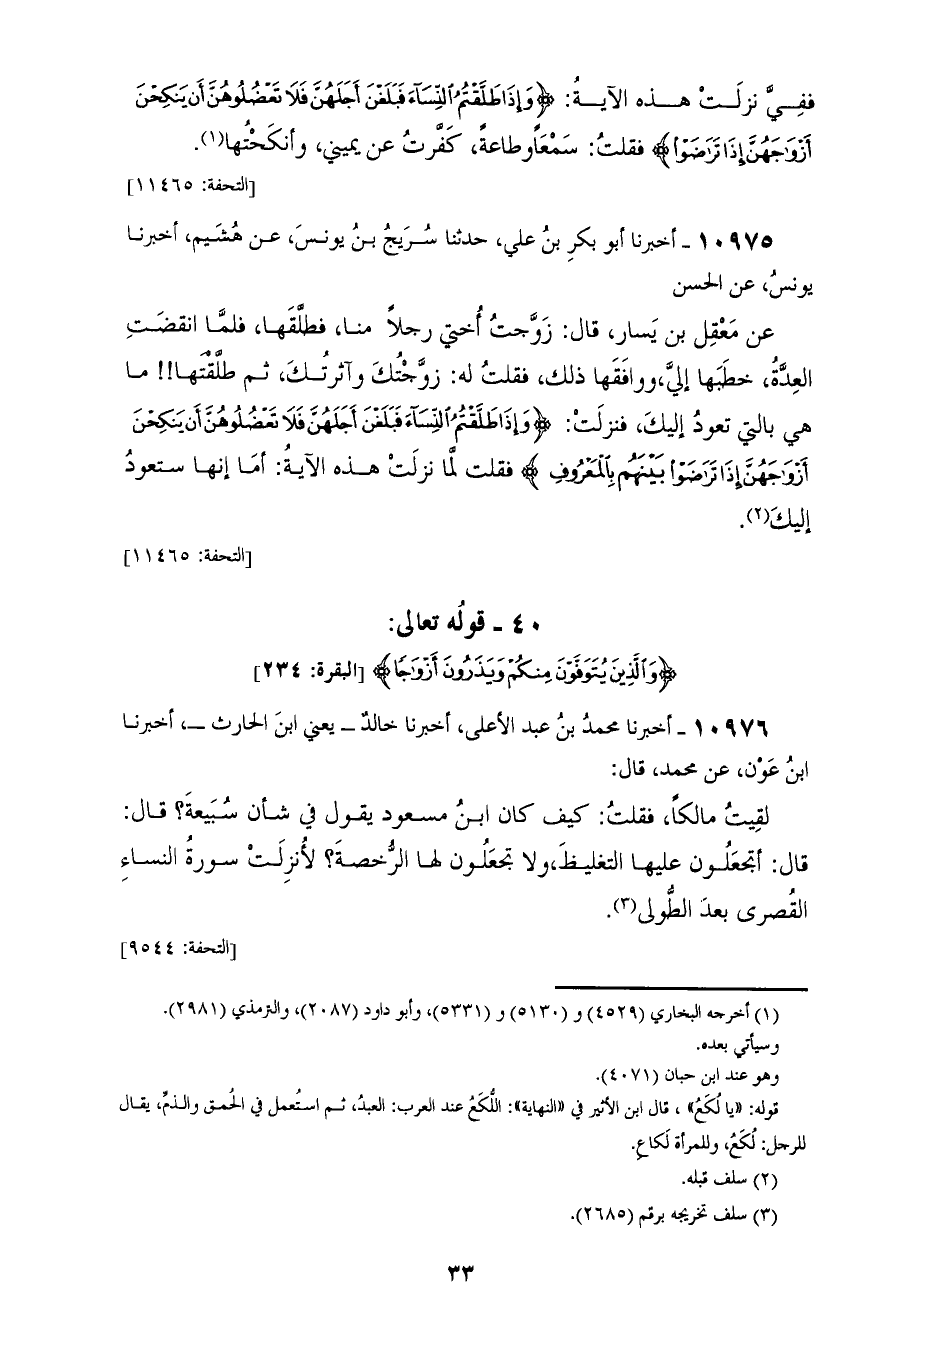 ففِيَّ نزلَتْ هذه الآيةُ: ﴿وَإِذَا طَلَّقْتُمُ ٱلنِّسَآءَ فَبَلَغْنَ أَجَلَهُنَّ فَلَا تَعْضُلُوهُنَّ أَن يَنكِحْنَ
أَزْوَٰجَهُنَّ إِذَا تَرَٰضَوْا۟﴾ فقلتُ: سَمْعاً وطاعةً، كَفَّرتُ عن يميني، وأنكَحْتُها(١).
[التحفة: ١١٤٦٥]
١٠٩٧٥ ـ أخبرنا أبو بكرِ بنُ علي، حدثنا سُرَيجُ بنُ يونسَ، عن هُشَيم، أخبرنا
يونسُ، عن الحسن
عن مَعْقِل بن يَسار، قال: زَوَّجتُ أُختي رجلاً منا، فطلَّقَها، فلمَّا انقضَتِ
العِدَّةُ، خطبَها إليَّ، ووافَقَها ذلك، فقلتُ له: زوَّجْتُكَ وآثرتُكَ، ثم طلَّقْتَها!! ما
هي بالتي تعودُ إليكَ، فنزلَتْ: ﴿وَإِذَا طَلَّقْتُمُ ٱلنِّسَآءَ فَبَلَغْنَ أَجَلَهُنَّ فَلَا تَعْضُلُوهُنَّ أَن يَنكِحْنَ
أَزْوَٰجَهُنَّ إِذَا تَرَٰضَوْا۟ بَيْنَهُم بِٱلْمَعْرُوفِ﴾ فقلت لمَّا نزلَتْ هذه الآيةُ: أمَا إنها ستعودُ
إليكَ(٢).
[التحفة: ١١٤٦٥]
٤٠ ـ قولُه تعالى:
﴿وَٱلَّذِينَ يُتَوَفَّوْنَ مِنكُمْ وَيَذَرُونَ أَزْوَٰجًا﴾ [البقرة: ٢٣٤]
١٠٩٧٦ ـ أخبرنا محمدُ بنُ عبد الأعلى، أخبرنا خالدٌ ـ يعني ابنَ الحارث ـ، أخبرنا
ابنُ عَوْن، عن محمد، قال:
لقِيتُ مالكاً، فقلتُ: كيف كان ابنُ مسعود يقول في شأن سُبَيعةَ؟ قال:
قال: أتجعَلُون عليها التغليظَ، ولا تجعَلُون لها الرُّخصةَ؟ لأُنزِلَتْ سورةُ النساءِ
القُصرى بعدَ الطُّولى(٣).
[التحفة: ٩٥٤٤]
(١) أخرجه البخاري (٤٥٢٩) و (٥١٣٠) و (٥٣٣١)، وأبو داود (٢٠٨٧)، والترمذي (٢٩٨١).
وسيأتي بعده.
وهو عند ابن حبان (٤٠٧١).
قوله: «يا لُكَعُ» ، قال ابن الأثير في «النهاية»: اللُّكَعُ عند العرب: العبدُ، ثم استُعمل في الحُمق والذمِّ، يقال
للرجل: لُكَعُ، وللمرأة لَكاعِ.
(٢) سلف قبله.
(٣) سلف تخريجه برقم (٢٦٨٥).
٣٣